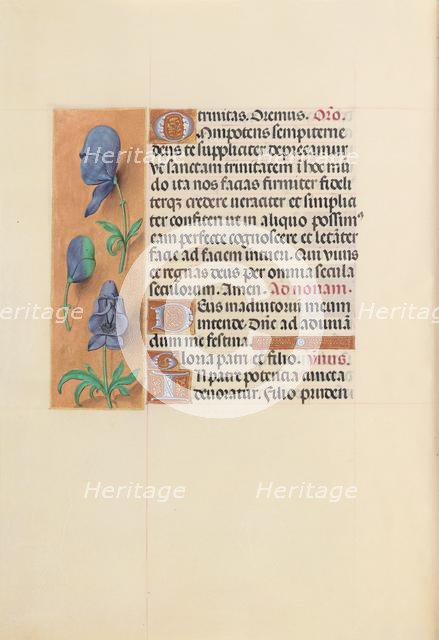 trinitas. Oremus. Oro.
Omnipotens sempiterne
deus te suppliciter deprecamur
vt sanctam trinitatem i hoc mū
do ita nos facias firmiter fideli
terq̄ credere veraciter et simplici
ter confiteri ut in aliquo possim
eam perfecte cognoscere et letāter
facie ad faciem intueri. Qui viuis
et regnas deus per omnia secula
seculorum. Amen. Ad nonam.
Deus in adiutorium meum
intende. Dn̄e ad adiuuā
dum me festina.
Gloria patri et filio. ymus.
In patre potencia cuncta
deuoratur. Filio pruden
Heritage
Heritage
Heritage
Heritage
Heritage
Heritage